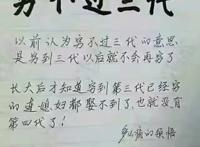 穷不过三代
以前认为穷不过三代的意思
是穷到三代以后就不会再穷了
长大后才知道穷到第三代已经穷
的连媳妇都娶不到了,也就没有
第四代了!
的领悟